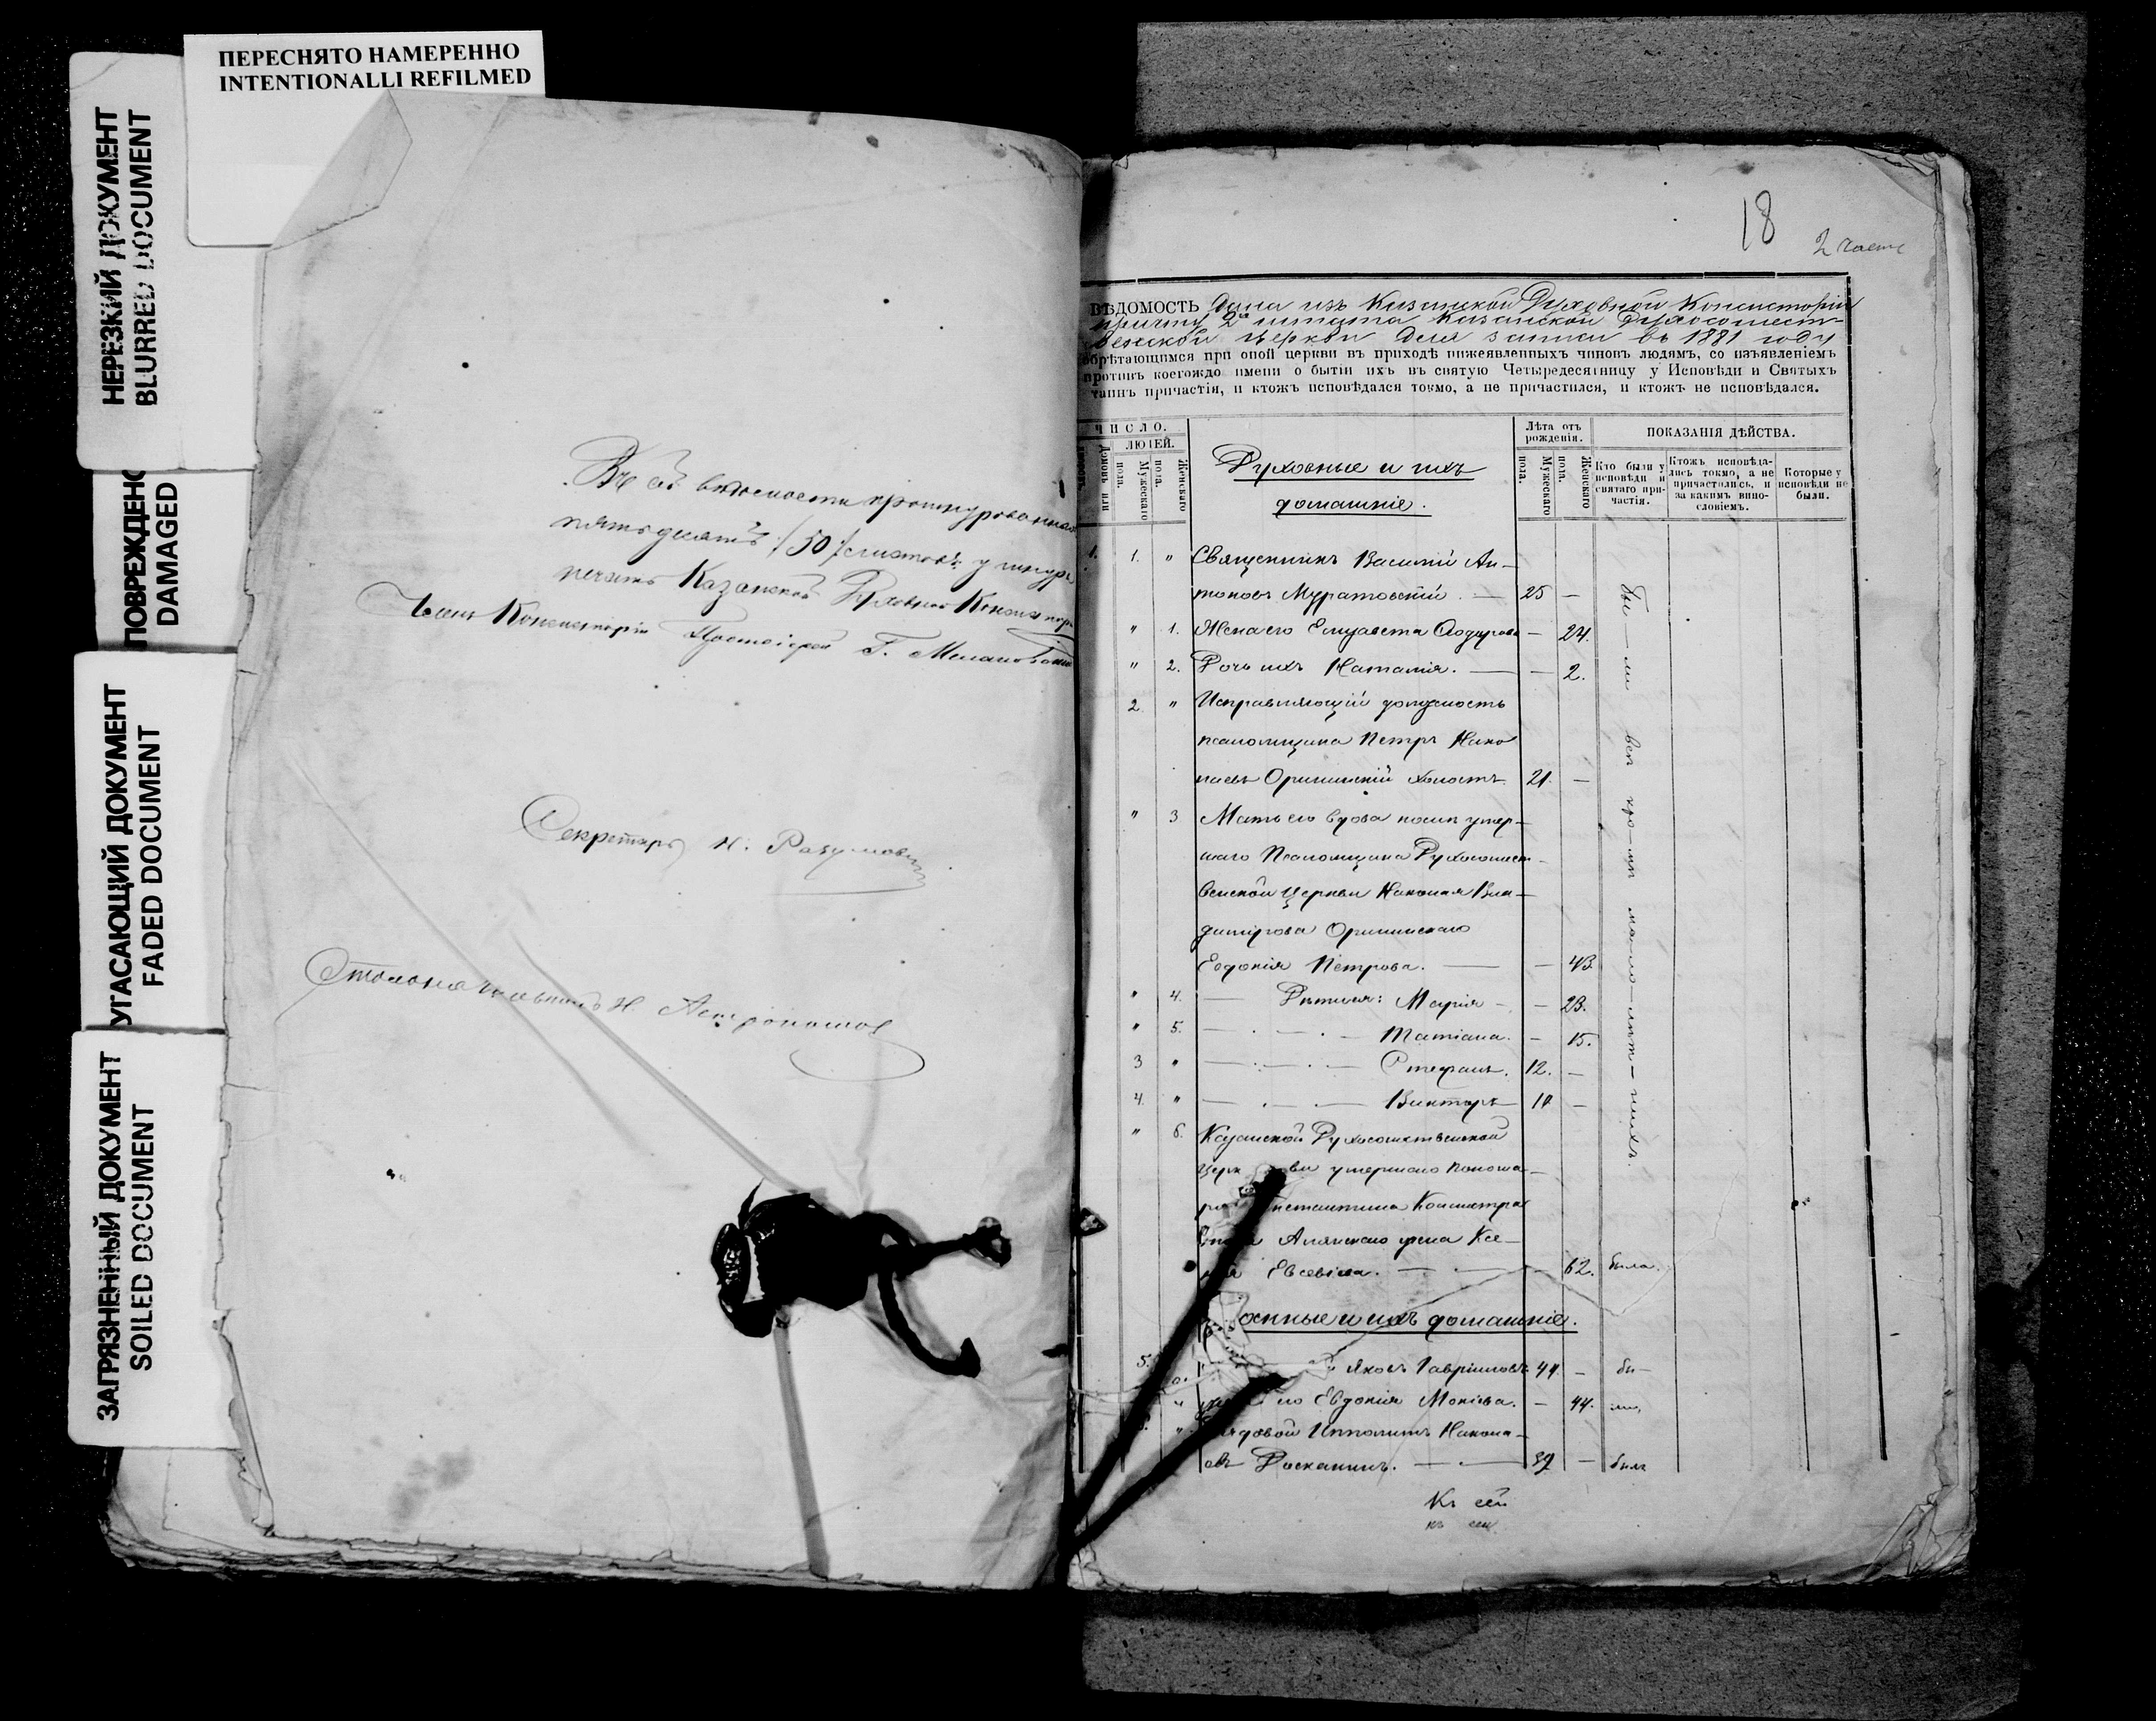 ПЕРЕСНЯТО НАМЕРЕННО
INTENTIONALLI REFILMED
НЕРЕЗКИЙ ДОКУМЕНТ
BLURRED DOCUMENT
ПОВРЕЖДЕНО
DAMAGED
УГАСАЮЩИЙ ДОКУМЕНТ
FADED DOCUMENT
ЗАГРЯЗНЕННЫЙ ДОКУМЕНТ
SOILED DOCUMENT
Въ сей ведомости прошнурованныхъ
пятьдесятъ /50/ листовъ у шнура
печать Казанской Духовной Консистор
Членъ Консисторіи Протоіерей Г.
Секретарь Н. Разумовъ
Столоначальникъ Н.
18
2 часть
ВѢДОМОСТЬ Дана изъ Казанской Духовной Консисторіи
причту 2 штата Казанской Духосошест-
венской церкви для записи въ 1881 году
обрѣтающимся при оной церкви въ приходѣ нижеявленныхъ чиновъ людямъ, со изъявленіемъ
противъ коегождо имени о бытіи ихъ въ святую Четыредесятницу у Исповѣди и Святыхъ
таинъ причастія, и ктожъ исповѣдался токмо, а не причастился, и ктожъ не исповѣдался.
ЧИСЛО.
ЛЮДЕЙ.
Домовъ или
Мужескаго пола.
Женскаго пола.
Духовные и ихъ
домашніе.
Лѣта отъ рожденія.
Мужескаго пола.
Женскаго пола.
ПОКАЗАНІЯ ДѢЙСТВА.
Кто были у исповѣди и святаго причастія.
Ктожъ исповѣдались токмо, а не причастились, и за какимъ винословіемъ.
Которые у исповѣди не были.
1. 1. " Священникъ Василій Ан-
тоновъ Муратовскій. — 25 —
" 1. Жена его Елизавета Ѳедорова — 24.
" 2. Дочь ихъ Наталія. — — 2.
2. " Исправляющій должность
псаломщика Петръ Нико
лаевъ Оришинскій холостъ 21. —
" 3 Мать его вдова послѣ умер-
шаго Псаломщика Духосошест-
венской Церкви Николая Вла-
димірова Оришинскаго
Евдокія Петрова. — — 43
" 4. — Дѣти ея: Марія — — 23.
" 5. — Татіана. — 15.
3 " — Стефанъ. 12. —
4. " — Викторъ 10 —
Бы — ли всѣ кро-мѣ мало-лѣт-нихъ.
" 6. Казанской Духосошественской
Церкви умершаго Понома-
ря Константина
Алянскаго жена Ксе-
нія Евсевіева. — — 62. была.
Военные и ихъ домашніе.
5. " Яковъ Гавриловъ 44 — бы-
" его Евдокія Мокіева. — 44. ли,
" Рядовой Ипполитъ Никола-
евъ Росканинъ. — 39 — былъ
Къ сей
къ сей